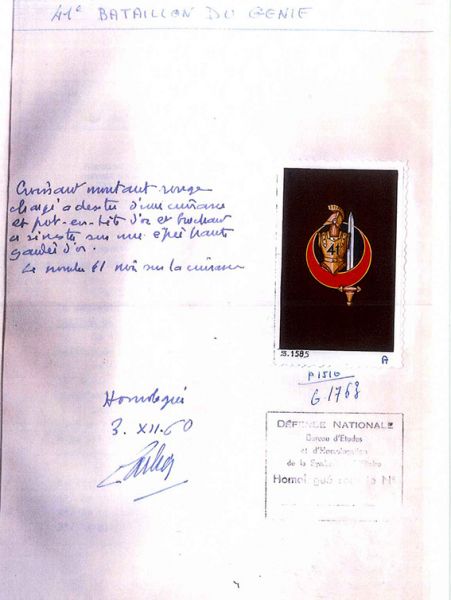 41e BATAILLON DU GENIE
Croissant montant rouge
chargé a dextre d'une cuirasse
et pot-en-tête d'or et brochant
a senestre sur une épée haute
gardée d'or.
Le nombre 41 noir sur la cuirasse
41
3.1585
A
P1510
G.1768
Homologué
3. XII. 60
DÉFENSE NATIONALE
Bureau d'Etudes
et d'Homologation
de la Militaire
Homologué sous le N°